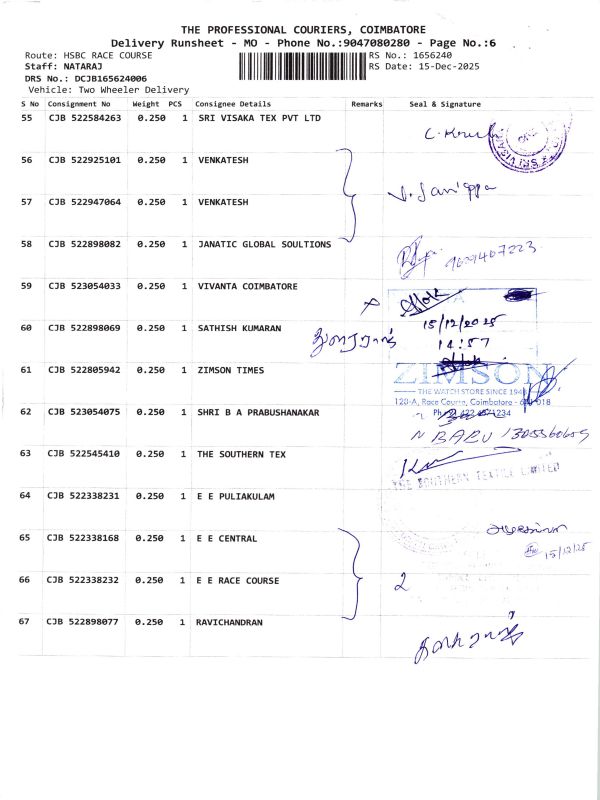 THE PROFESSIONAL COURIERS, COIMBATORE
Delivery Runsheet - MO - Phone No.:9047080280 - Page No.:6
Route: HSBC RACE COURSE
RS No.: 1656240
Staff: NATARAJ
RS Date: 15-Dec-2025
DRS No.: DCJB165624006
Vehicle: Two Wheeler Delivery
S No Consignment No Weight PCS Consignee Details Remarks Seal & Signature
55 CJB 522584263 0.250 1 SRI VISAKA TEX PVT LTD
56 CJB 522925101 0.250 1 VENKATESH
57 CJB 522947064 0.250 1 VENKATESH
58 CJB 522898082 0.250 1 JANATIC GLOBAL SOULTIONS
59 CJB 523054033 0.250 1 VIVANTA COIMBATORE
60 CJB 522898069 0.250 1 SATHISH KUMARAN
15/12/2025
14:57
61 CJB 522805942 0.250 1 ZIMSON TIMES
ZIMSON
THE WATCH STORE SINCE 1948
120-A, Race Course, Coimbatore - 641 018
62 CJB 523054075 0.250 1 SHRI B A PRABUSHANAKAR
N BABU
63 CJB 522545410 0.250 1 THE SOUTHERN TEX
THE SOUTHERN TEXTILE LIMITED
64 CJB 522338231 0.250 1 E E PULIAKULAM
65 CJB 522338168 0.250 1 E E CENTRAL
15/12/25
66 CJB 522338232 0.250 1 E E RACE COURSE
2
67 CJB 522898077 0.250 1 RAVICHANDRAN